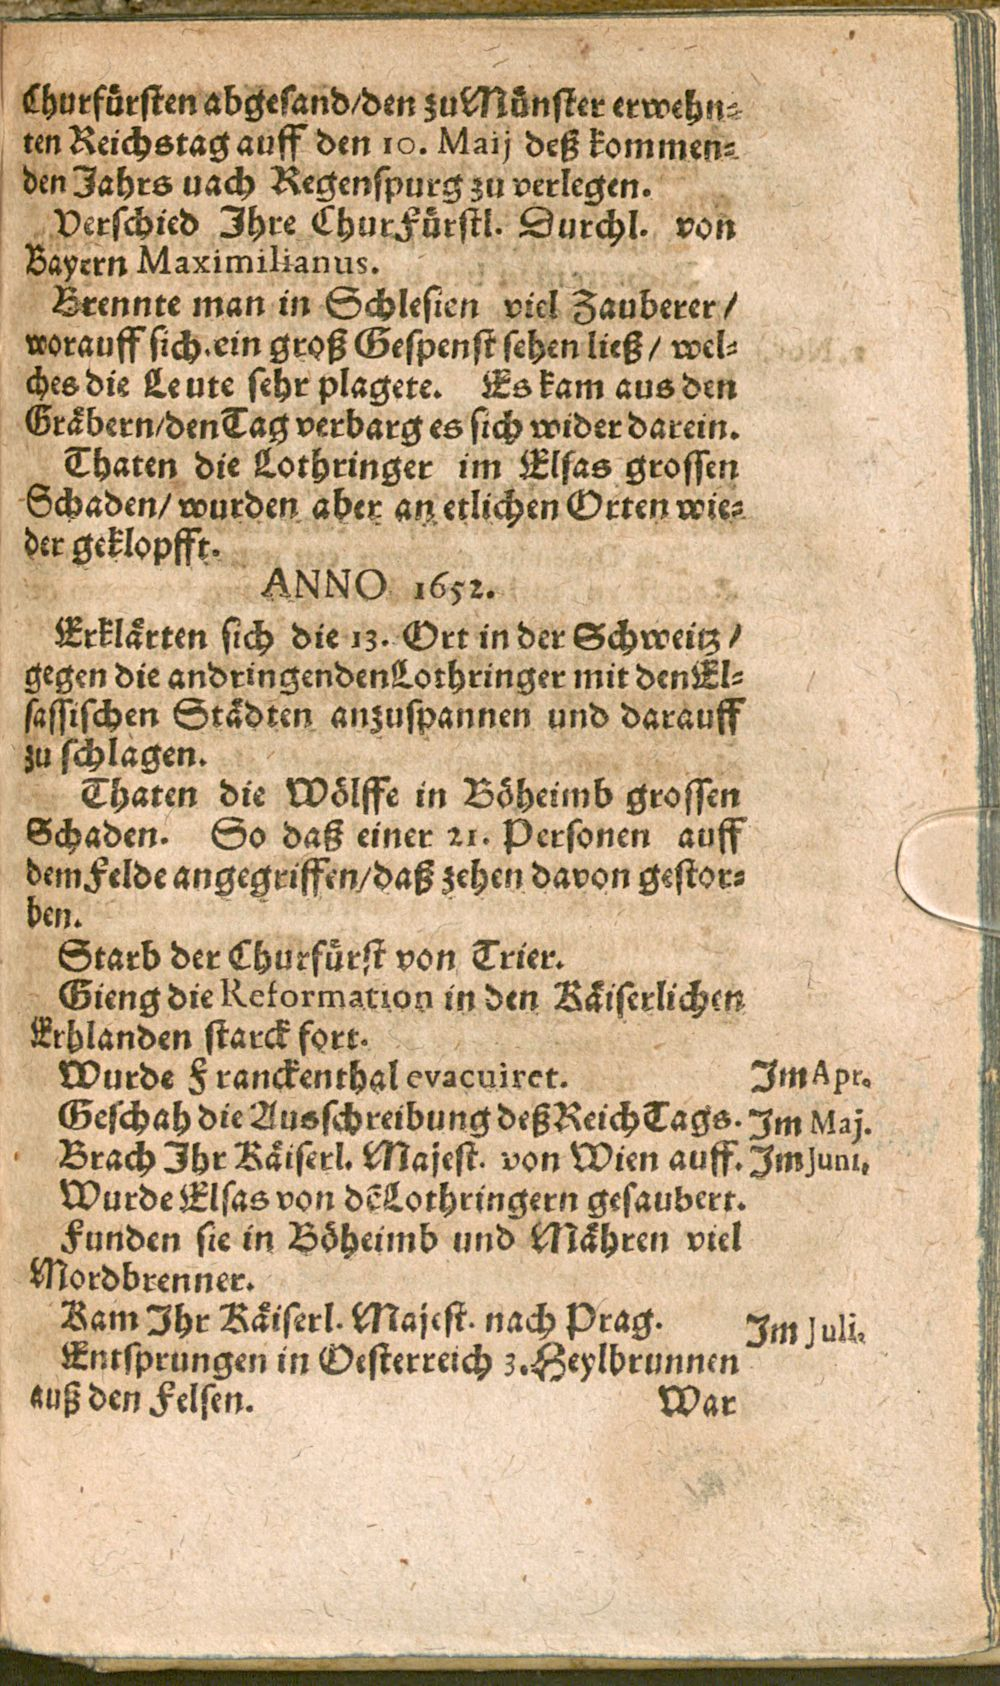 Churfürsten abgesand/den zu Münster erwehn-
ten Reichstag auff den 10. Maij deß kommen-
den Jahrs uach Regenspurg zu verlegen.
Verschied Ihre ChurFürstl. Durchl. von
Bayern Maximilianus.
Brennte man in Schlesien viel Zauberer /
worauff sich ein groß Gespenst sehen ließ / wel-
ches die Leute sehr plagete. Es kam aus den
Gräbern/den Tag verbarg es sich wider darein.
Thaten die Lothringer im Elsas grossen
Schaden/ wurden aber an etlichen Orten wie-
der geklopfft.
ANNO 1652.
Erklärten sich die 13. Ort in der Schweitz /
gegen die andringenden Lothringer mit den El-
sassischen Städten anzuspannen und darauff
zu schlagen.
Thaten die Wölffe in Böheimb grossen
Schaden. So daß einer 21. Personen auff
dem Felde angegriffen/daß zehen davon gestor-
ben.
Starb der Churfürst von Trier.
Gieng die Reformation in den Käiserlichen
Erblanden starck fort.
Wurde Franckenthal evacuiret. Im Apr.
Geschah die Ausschreibung deß ReichTags. Im Maj.
Brach Ihr Käiserl. Majest. von Wien auff. Im Juni.
Wurde Elsas von dē Lothringern gesaubert.
Funden sie in Böheimb und Mähren viel
Mordbrenner.
Kam Ihr Käiserl. Majest. nach Prag. Im Juli.
Entsprungen in Oesterreich 3. Heylbrunnen
auß den Felsen. War